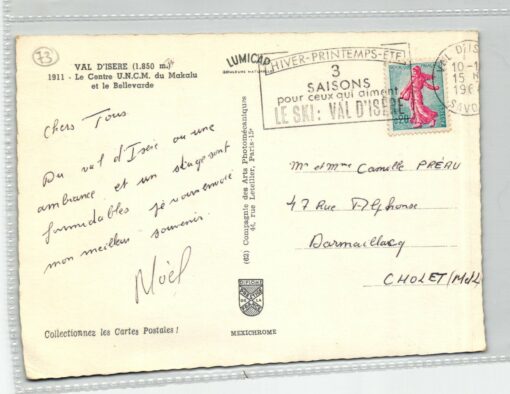 73
VAL D'ISERE (1.850 m.)
1911 - Le Centre U.N.C.M. du Makalu
et le Bellevarde
LUMICAP
HIVER-PRINTEMPS-ÉTÉ
3
SAISONS
pour ceux qui aiment
LE SKI: VAL D'ISÈRE
VAL D'IS
10-1
15
196
SAVO
0,20
Chers Tous
Du val d'Isère ou une
ambiance et un stage sont
formidables je vous envoie
mon meilleur souvenir.
Noël
Mr et Mme Camille PRÉAU
47 Rue Alphonse
Darmaillacq
CHOLET (M&L
(62) Compagnie des Arts Photomécaniques
44, rue Letellier, Paris-15e
Collectionnez les Cartes Postales !
MEXICHROME